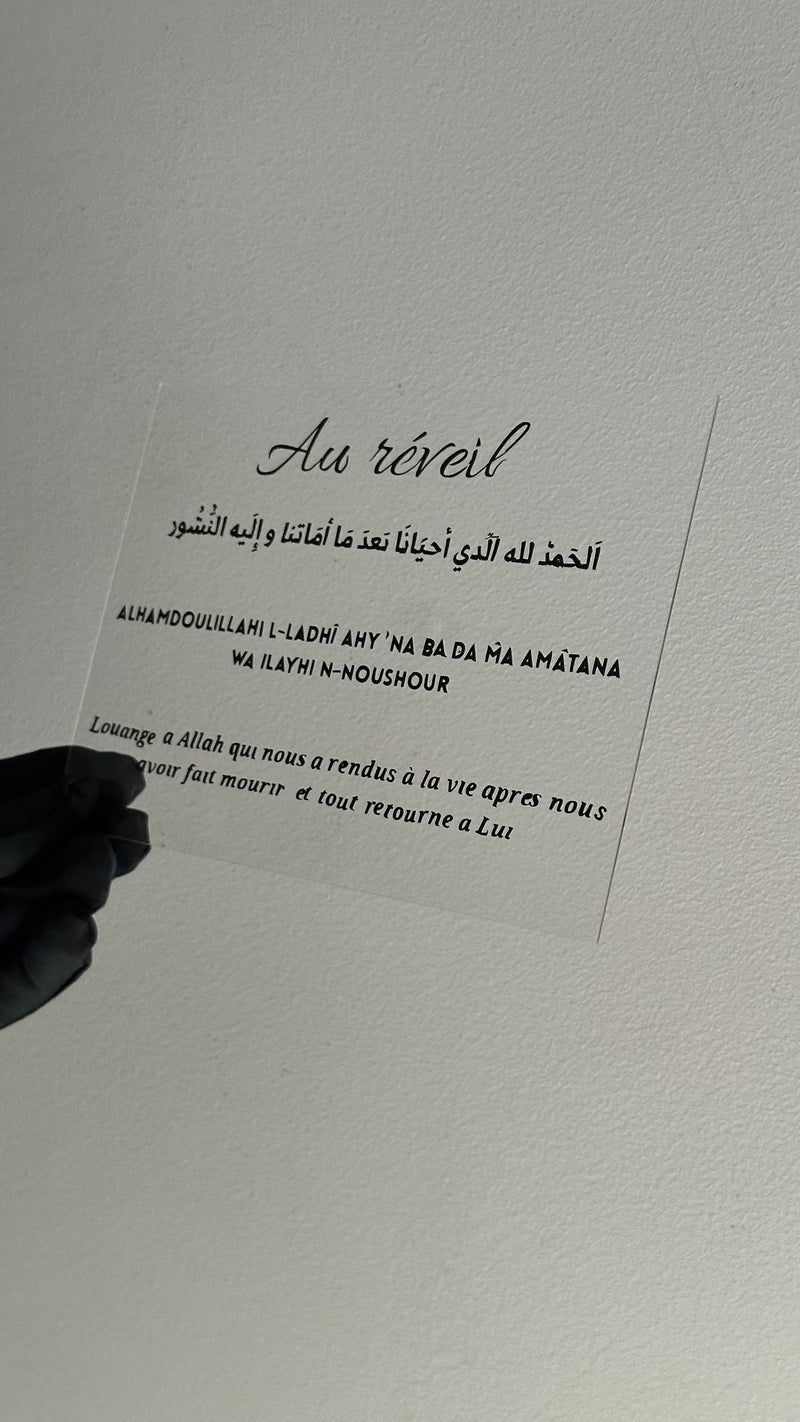 Au réveil
اَلحَمدُ لله الَّدي أحيَانَا بَعدَ مَا أمَاتنا و إِلَيه النُّشُور
ALHAMDOULILLAHI L-LADHÎ AHY 'NA BA DA MA AMÂTANA
WA ILAYHI N-NOUSHOUR
Louange a Allah quı nous a rendus à la vıe apres nous
avoır faıt mourır et tout retourne a Luı